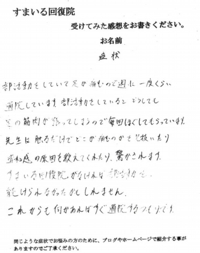 すまいる回復院
受けてみた感想をお書きください。
お名前
症状
部活動をしていて足が痛むので週に一度くらい
通院しています。部活動をしているとどうしても
足の筋肉が張ってしまうので毎回ほぐしてもらっています。
先生は触るだけでどこが痛むのかを見抜いたり
違和感の原因を教えてくれたり、驚かされます。
すまいる回復院がなければ部活動を
続けられなかったかもしれません。
これからも何かあればすぐ通院するつもりです。
同じような症状でお悩みの方のために、ブログやホームページで紹介する事が
ありますのでご了承ください。